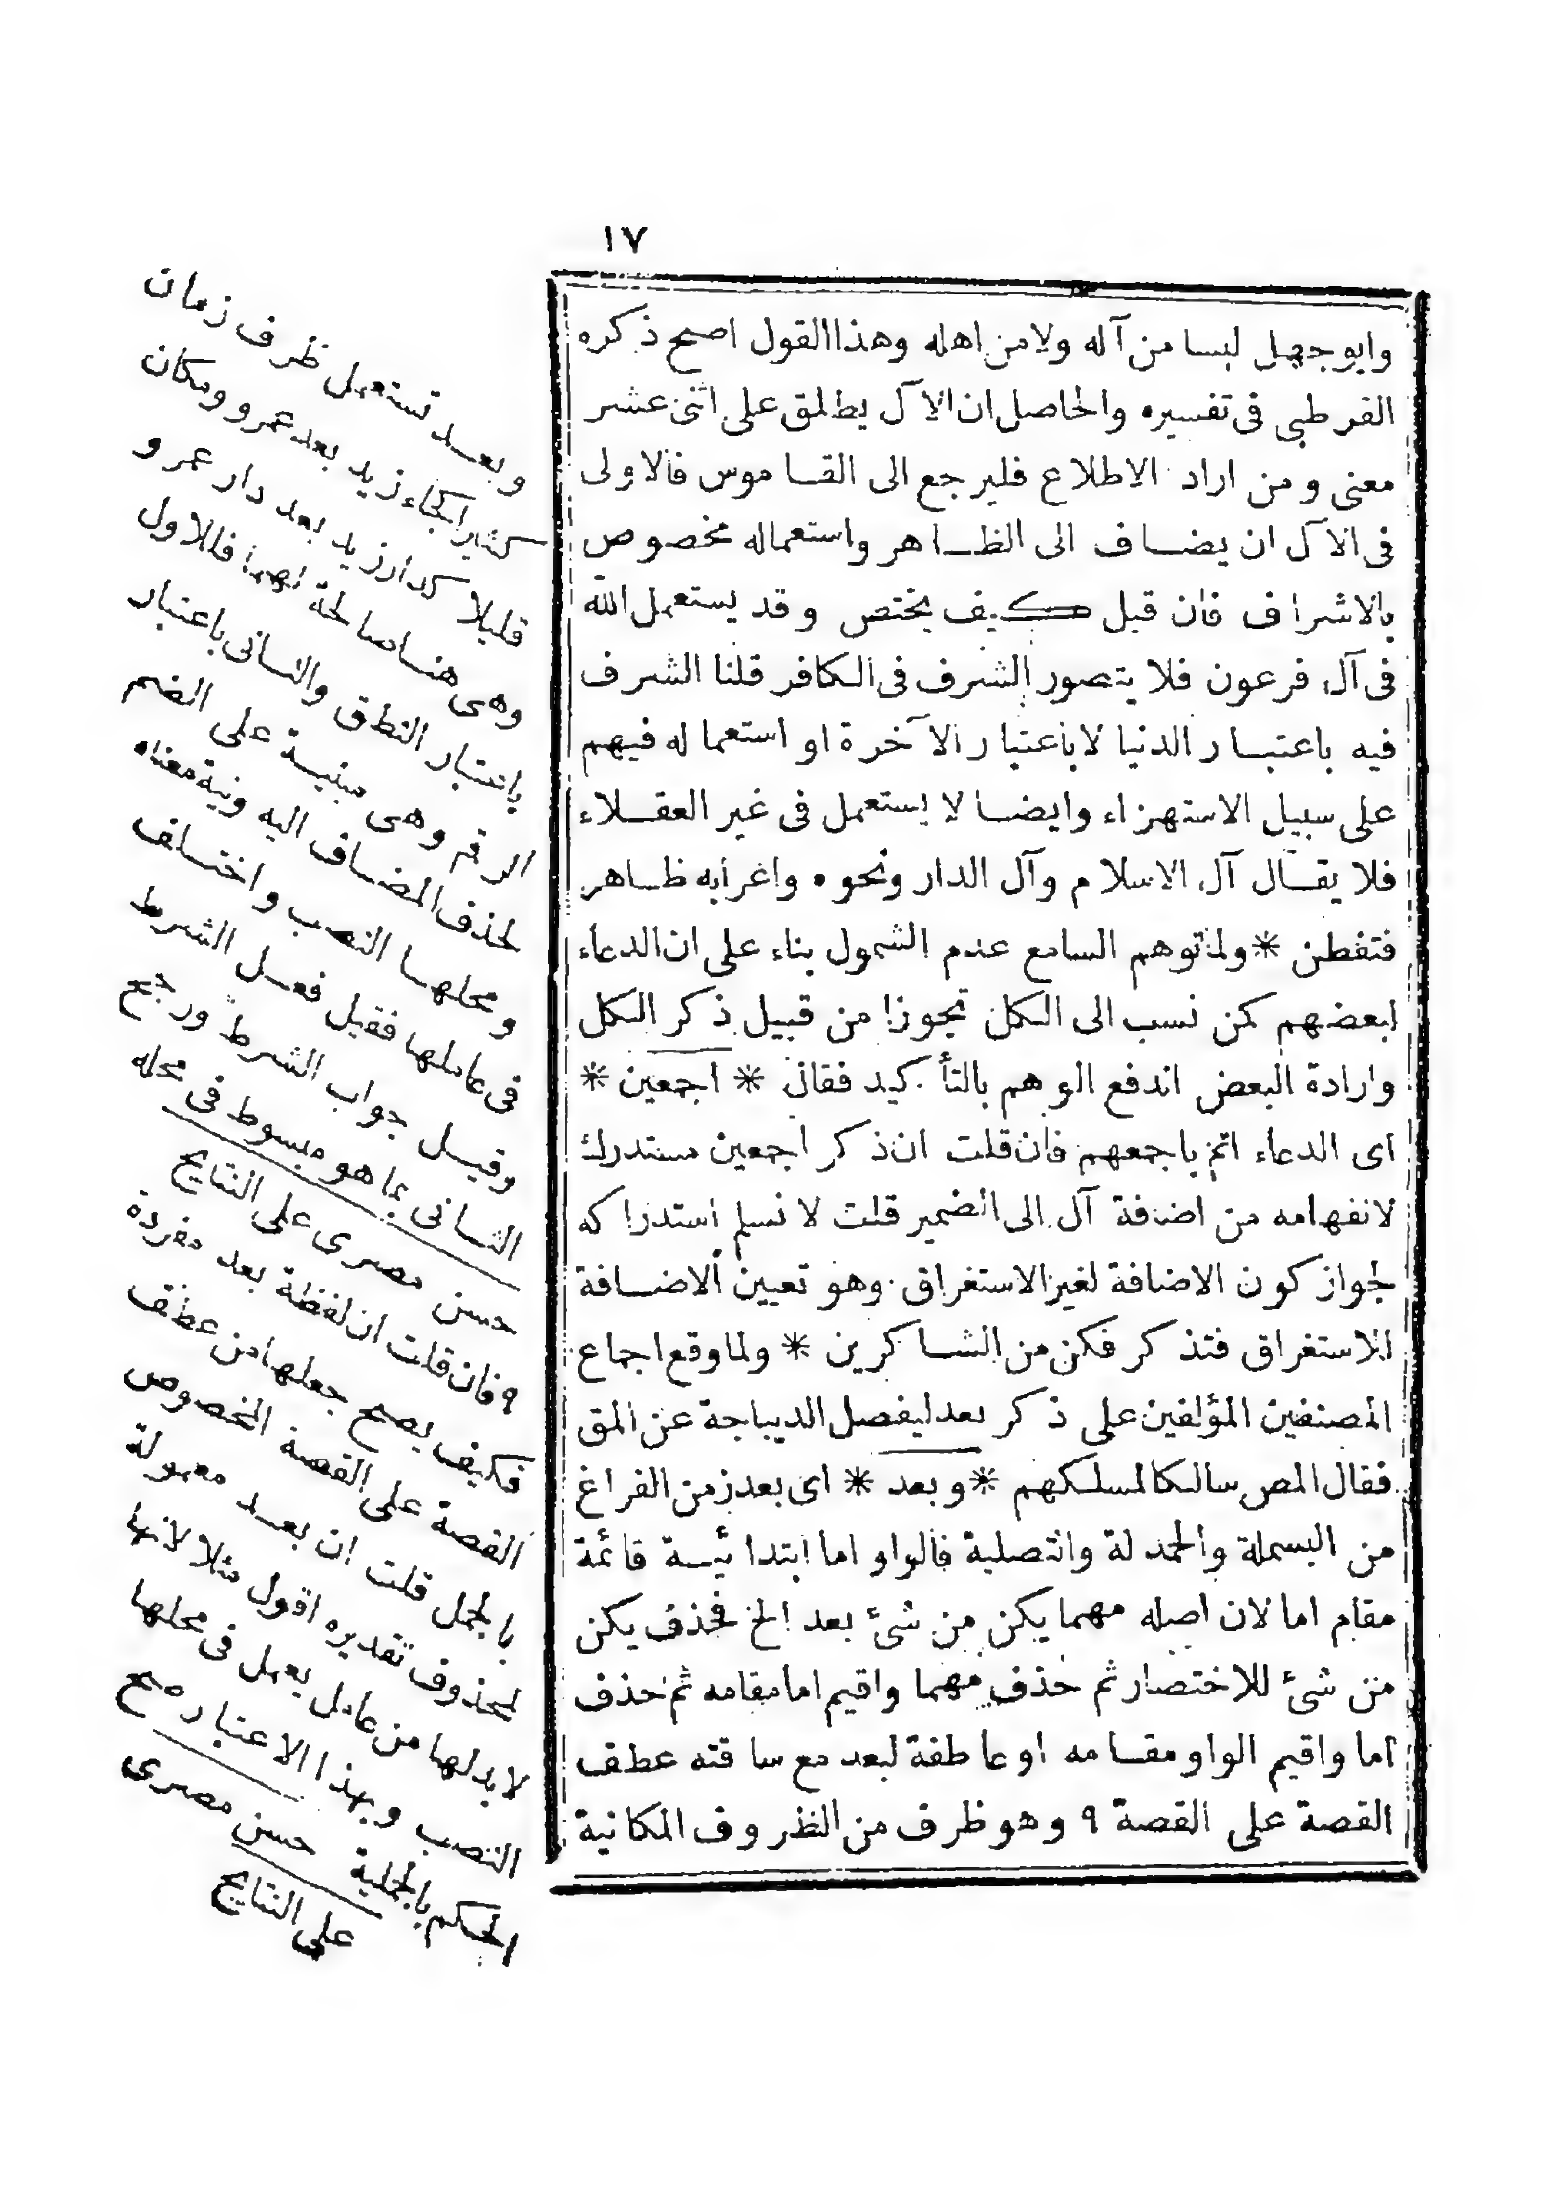 ١٧
وابوجهل ليسا من آله ولا من اهله وهذا القول اصح ذكره
القرطبى فى تفسيره والحاصل ان الآل يطلق على اثنى عشر
معنى ومن اراد الاطلاع فليرجع الى القاموس فالاولى
فى الآل ان يضاف الى الظاهر واستعماله مخصوص
بالاشراف فان قيل كيف يختص وقد يستعمل الله
فى آل فرعون فلا يتصور الشرف فى الكافر قلنا الشرف
فيه باعتبار الدنيا لا باعتبار الآخرة او استعماله فيهم
على سبيل الاستهزاء وايضا لا يستعمل فى غير العقلاء
فلا يقال آل الاسلام وآل الدار ونحوه واعرابه ظاهر
فتفطن * ولما توهم السامع عدم الشمول بناء على ان الدعاء
لبعضهم لكن نسب الى الكل تجوزا من قبيل ذكر الكل
وارادة البعض اندفع الوهم بالتأكيد فقال * اجمعين *
اى الدعاء اتم باجمعهم فان قلت ان ذكر اجمعين مستدرك
لانفهامه من اضافة آل الى الضمير قلت لا نسلم استدراكه
لجواز كون الاضافة لغير الاستغراق وهو تعيين الاضافة
للاستغراق فتذكر فكن من الشاكرين * ولما وقع اجماع
المصنفين المؤلفين على ذكر بعد ليفصل الديباجة عن المق
فقال المص سالكا لمسلكهم * وبعد * اى بعد زمن الفراغ
من البسملة والحمدلة والتصلية فالواو اما ابتدائية قائمة
مقام اما لان اصله مهما يكن من شئ بعد الخ فحذف يكن
من شئ للاختصار ثم حذف مهما واقيم اما مقامه ثم حذف
اما واقيم الواو مقامه او عاطفة لبعد مع ساقته عطف
القصة على القصة ٩ وهو ظرف من الظروف المكانية
وبعد تستعمل ظرف زمان
كثيرا كجاء زيد بعد عمرو ومكان
قليلا كدار زيد بعد دار عمرو
وهى هنا صالحة لهما فللاول
باعتبار النطق والثانى باعتبار
الرقم وهى مبنية على الضم
لحذف المضاف اليه ونية معناه
ومحلها النصب واختلف
فى عاملها فقيل فعل الشرط
وقيل جواب الشرط ورجح
الثانى بما هو مبسوط فى محله
حسن مصرى على النتايج
٩ فان قلت ان لفظة بعد مفردة
فكيف يصح جعلها من عطف
القصة على القصة المخصوص
بالجمل قلت ان بعد معمولة
لمحذوف تقديره اقول مثلا لانها
لا بد لها من عامل يعمل فى محلها
النصب وبهذا الاعتبار صح
الحكم بالجملية حسن مصرى
على النتايج